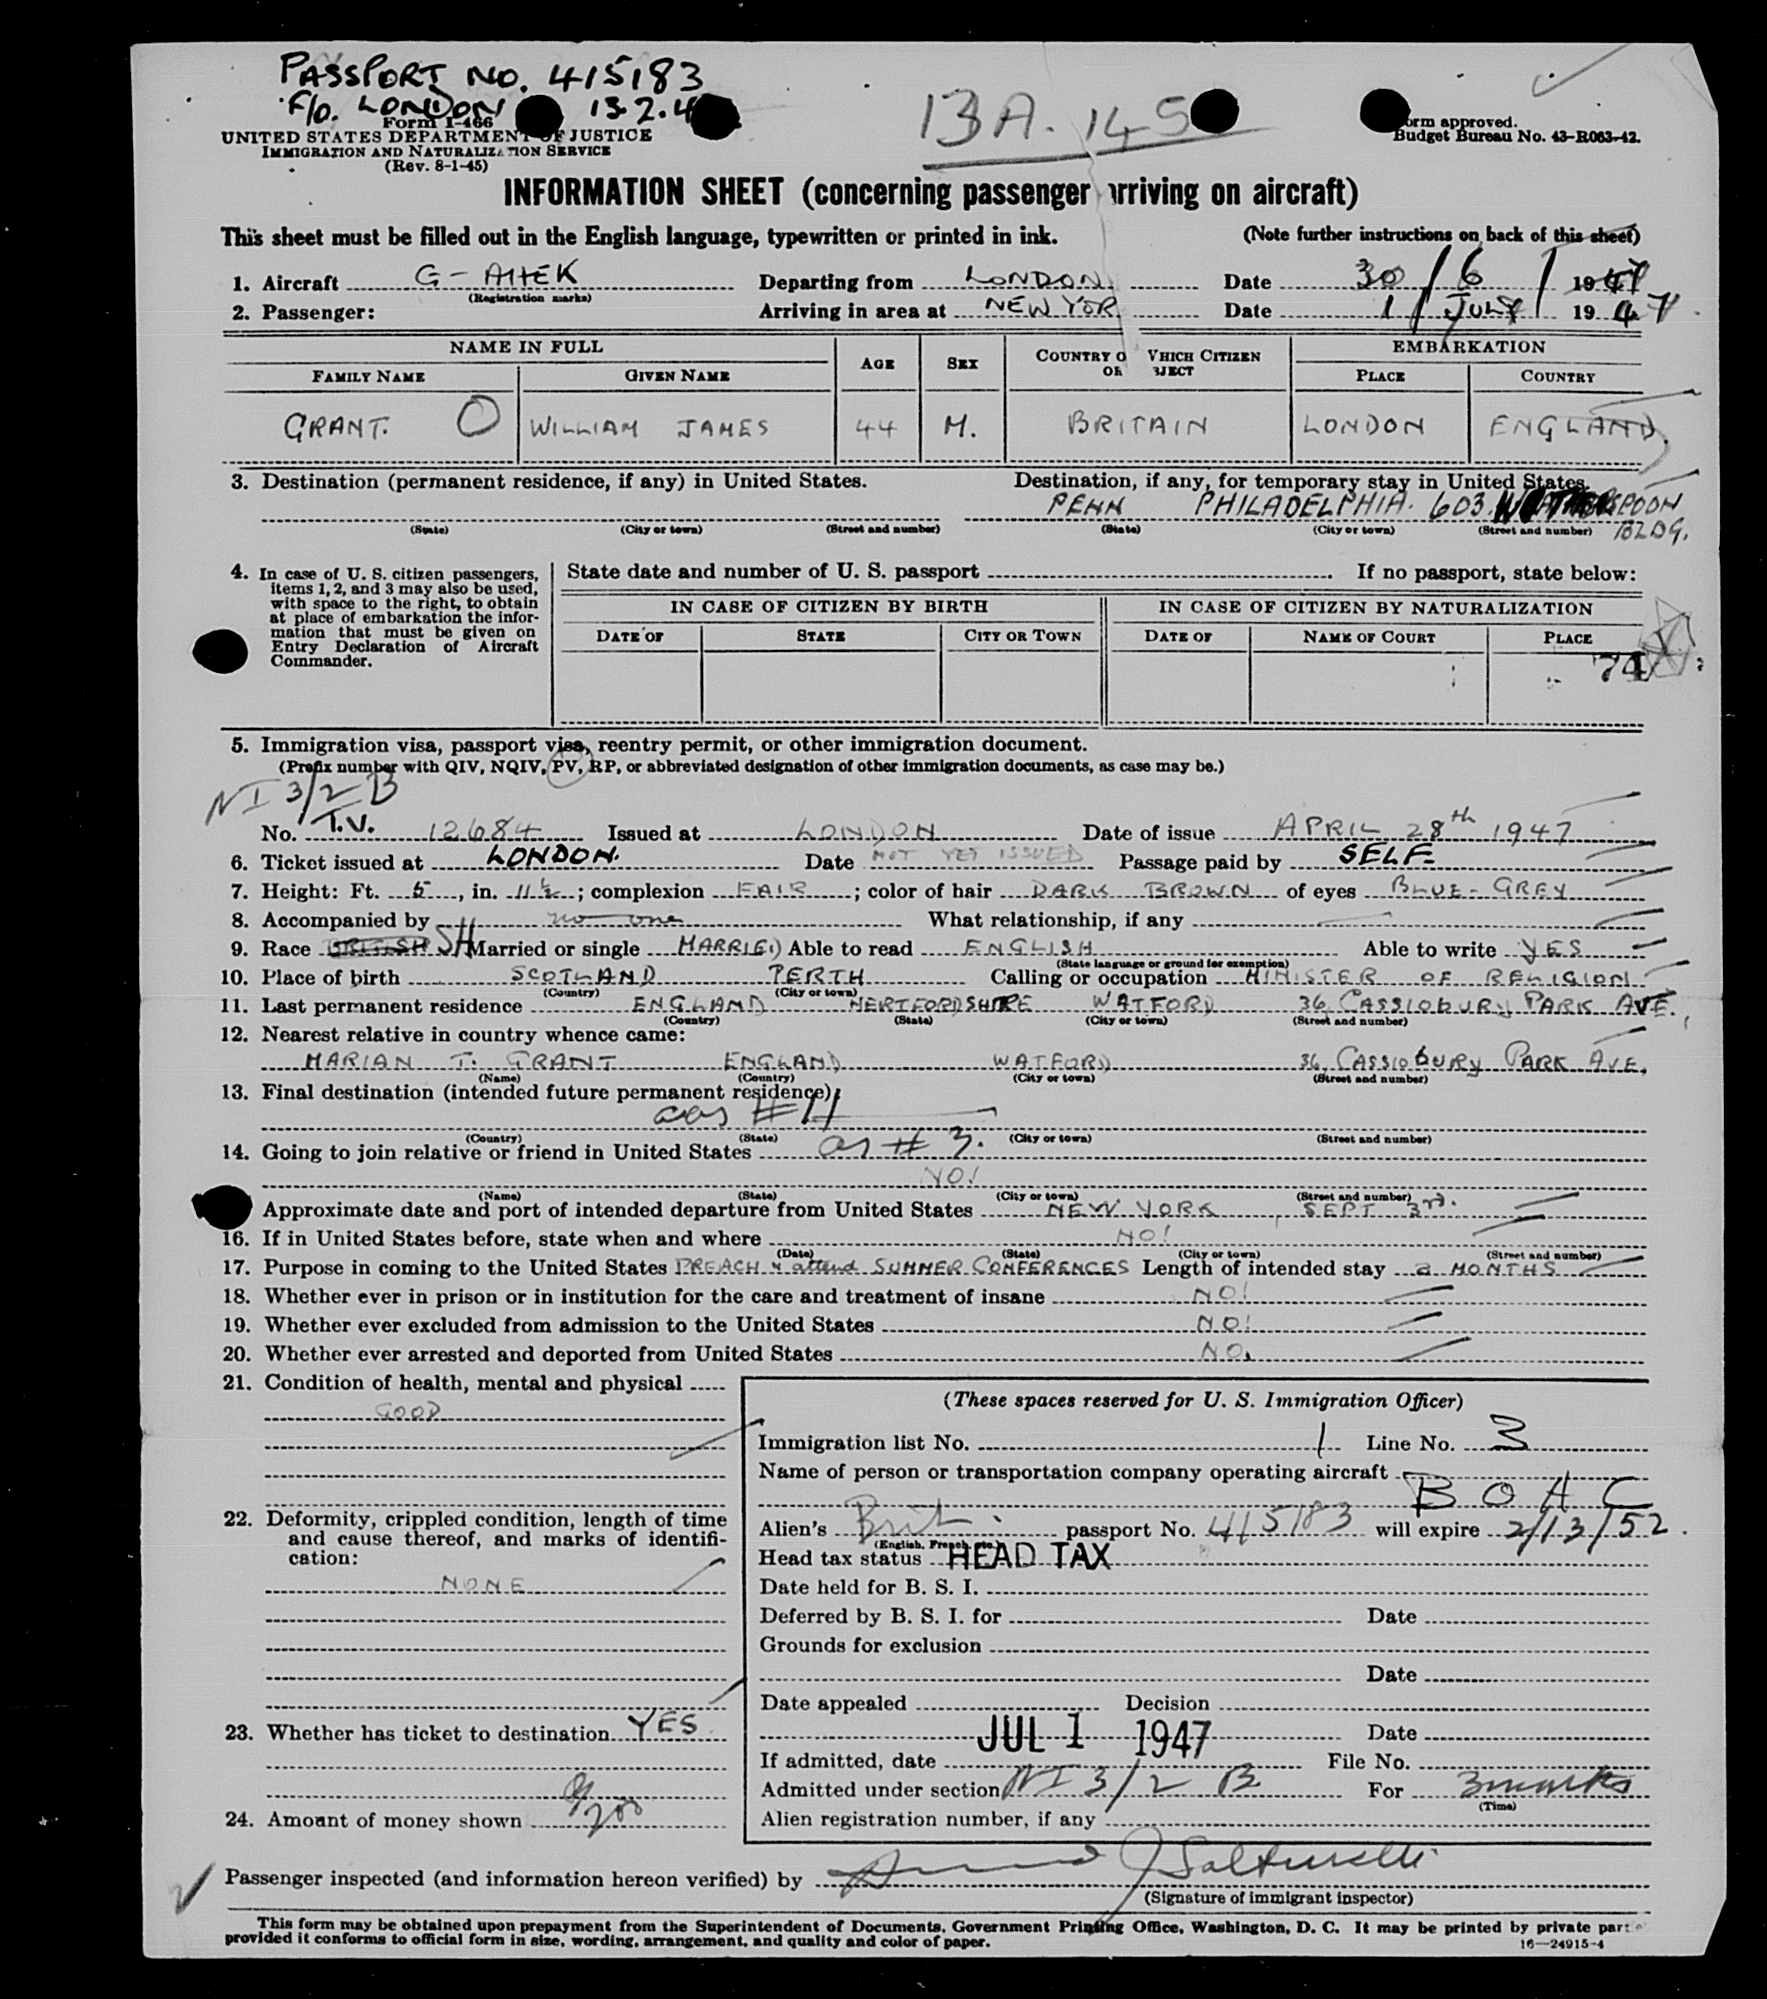 PASSPORT NO. 415183
F/O. LONDON 13.2.4
13A. 145
Form I-466
UNITED STATES DEPARTMENT OF JUSTICE
IMMIGRATION AND NATURALIZATION SERVICE
(Rev. 8-1-45)
orm approved.
Budget Bureau No. 43-R063-42.
INFORMATION SHEET (concerning passenger arriving on aircraft)
This sheet must be filled out in the English language, typewritten or printed in ink. (Note further instructions on back of this sheet)
1. Aircraft G-AHEK Departing from LONDON. Date 30/6/1947
(Registration marks)
2. Passenger: Arriving in area at NEW YOR Date 1/JULY/1947.
NAME IN FULL AGE SEX COUNTRY O WHICH CITIZEN OR BJECT EMBARKATION
FAMILY NAME GIVEN NAME PLACE COUNTRY
GRANT. WILLIAM JAMES 44 M. BRITAIN LONDON ENGLAND.
3. Destination (permanent residence, if any) in United States. Destination, if any, for temporary stay in United States.
PENN PHILADELPHIA. 603 BLDG.
(State) (City or town) (Street and number) (State) (City or town) (Street and number)
4. In case of U. S. citizen passengers, items 1, 2, and 3 may also be used, with space to the right, to obtain at place of embarkation the information that must be given on Entry Declaration of Aircraft Commander.
State date and number of U. S. passport If no passport, state below:
IN CASE OF CITIZEN BY BIRTH IN CASE OF CITIZEN BY NATURALIZATION
DATE OF STATE CITY OR TOWN DATE OF NAME OF COURT PLACE
74
5. Immigration visa, passport visa, reentry permit, or other immigration document.
(Prefix number with QIV, NQIV, PV, RP, or abbreviated designation of other immigration documents, as case may be.)
NI 3/2 B
No. T.V. 12684 Issued at LONDON Date of issue APRIL 28th 1947
6. Ticket issued at LONDON. Date NOT YET ISSUED Passage paid by SELF
7. Height: Ft. 5, in. 11½; complexion FAIR; color of hair DARK BROWN of eyes BLUE-GREY
8. Accompanied by no one What relationship, if any
9. Race BRITISH SH Married or single MARRIED Able to read ENGLISH Able to write YES
(State language or ground for exemption)
10. Place of birth SCOTLAND PERTH Calling or occupation MINISTER OF RELIGION
(Country) (City or town)
11. Last permanent residence ENGLAND HERTFORDSHIRE WATFORD 36, CASSIOBURY PARK AVE.
(Country) (State) (City or town) (Street and number)
12. Nearest relative in country whence came:
MARIAN T. GRANT ENGLAND WATFORD 36, CASSIOBURY PARK AVE.
(Name) (Country) (City or town) (Street and number)
13. Final destination (intended future permanent residence):
as #11
(Country) (State) (City or town) (Street and number)
14. Going to join relative or friend in United States as #3.
NO!
(Name) (State) (City or town) (Street and number)
Approximate date and port of intended departure from United States NEW YORK, SEPT 3rd.
16. If in United States before, state when and where NO!
(Date) (State) (City or town) (Street and number)
17. Purpose in coming to the United States PREACH & attend SUMMER CONFERENCES Length of intended stay 2 MONTHS
18. Whether ever in prison or in institution for the care and treatment of insane NO!
19. Whether ever excluded from admission to the United States NO!
20. Whether ever arrested and deported from United States NO.
21. Condition of health, mental and physical
GOOD
22. Deformity, crippled condition, length of time and cause thereof, and marks of identification:
NONE
23. Whether has ticket to destination YES
24. Amount of money shown 200
(These spaces reserved for U. S. Immigration Officer)
Immigration list No. 1 Line No. 3
Name of person or transportation company operating aircraft
BOAC
Alien's Brit. passport No. 415183 will expire 2/13/52.
(English, French, etc.)
Head tax status HEAD TAX
Date held for B. S. I.
Deferred by B. S. I. for Date
Grounds for exclusion
Date
Date appealed Decision
Date
JUL 1 1947
If admitted, date File No.
Admitted under section NI 3/2 B For 3
(Time)
Alien registration number, if any
Passenger inspected (and information hereon verified) by
(Signature of immigrant inspector)
This form may be obtained upon prepayment from the Superintendent of Documents, Government Printing Office, Washington, D. C. It may be printed by private part
provided it conforms to official form in size, wording, arrangement, and quality and color of paper.
16—24915-4